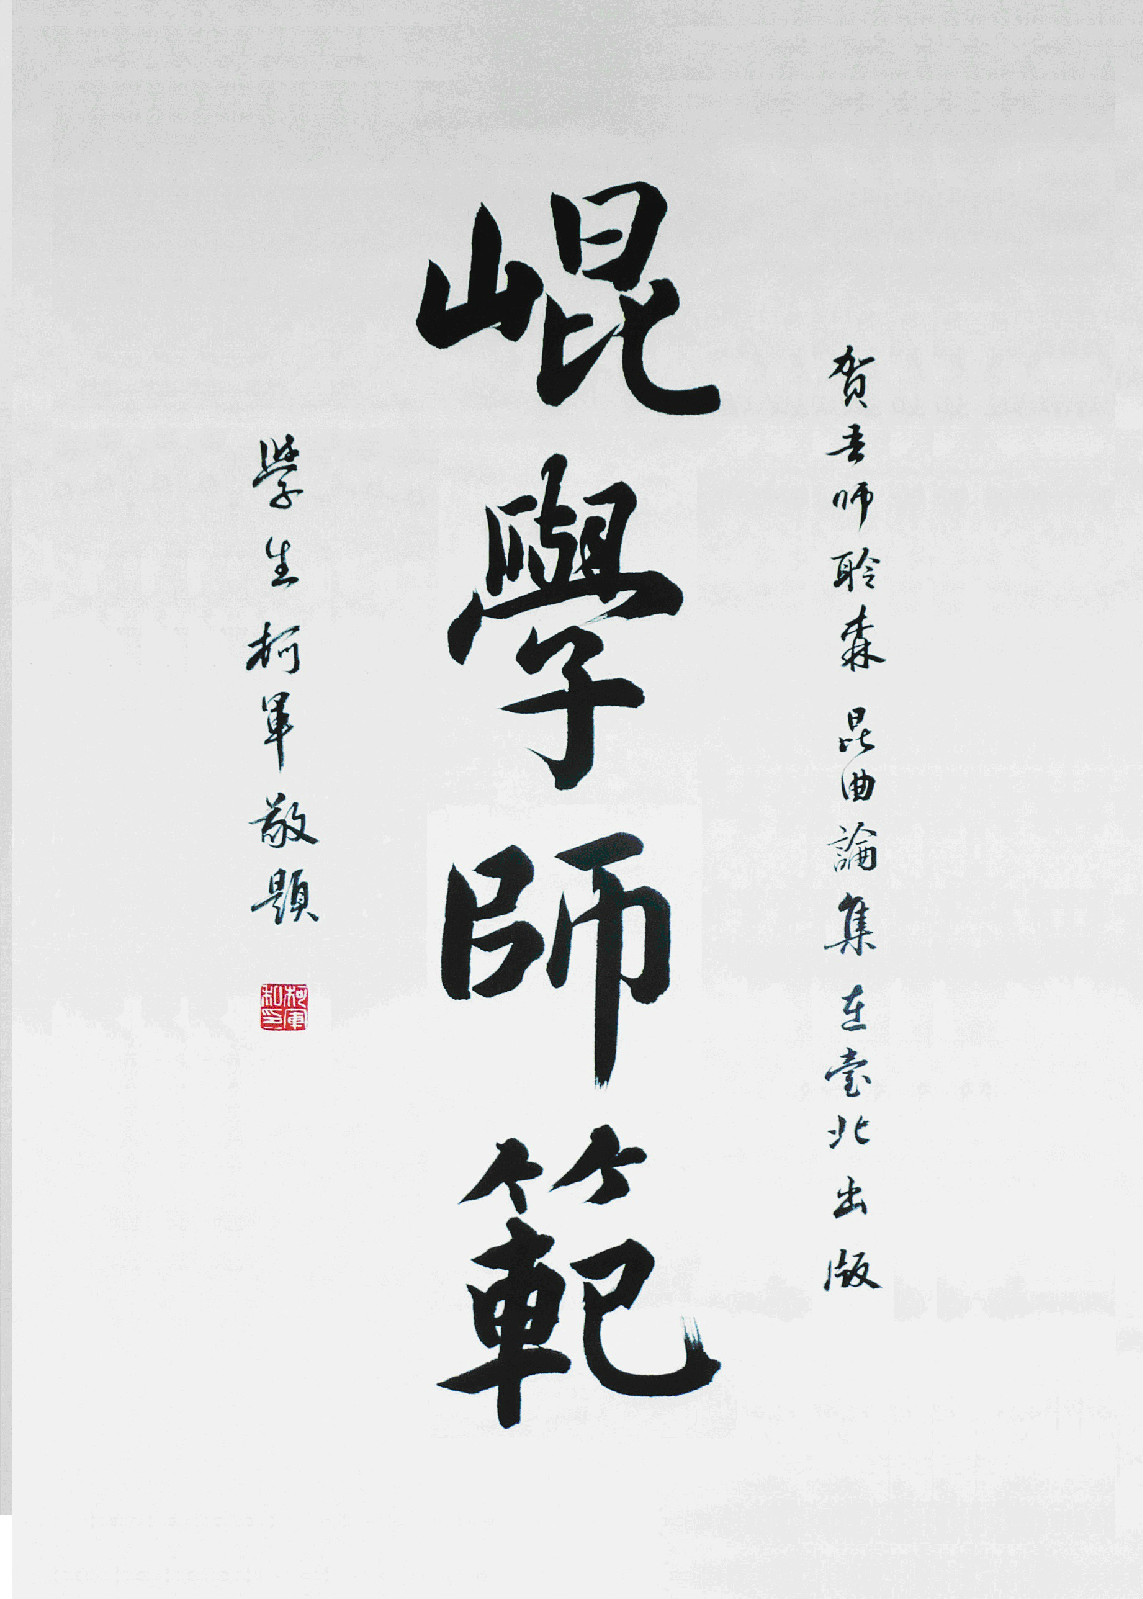 賀吾师聆森 昆曲論集 在臺北出版
崐學師範
學生柯軍敬題
柯軍